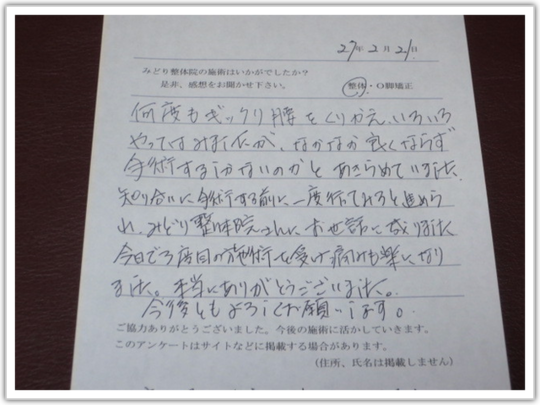 27年2月21日
みどり整体院の施術はいかがでしたか?
是非、感想をお聞かせ下さい。
整体・O脚矯正
何度もギックリ腰をくりかえし、いろいろ
やってはみましたが、なかなか良くならず
手術するしかないのかとあきらめていました。
知り合いに手術する前に一度行てみろと進めら
れ、みどり整体院さんにお世話に成りました
今日で3度目の施術を受け痛みも楽になり
ました。本当にありがとうございました。
今後ともよろしくお願いします。
ご協力ありがとうございました。今後の施術に活かしていきます。
このアンケートはサイトなどに掲載する場合があります。
(住所、氏名は掲載しません)